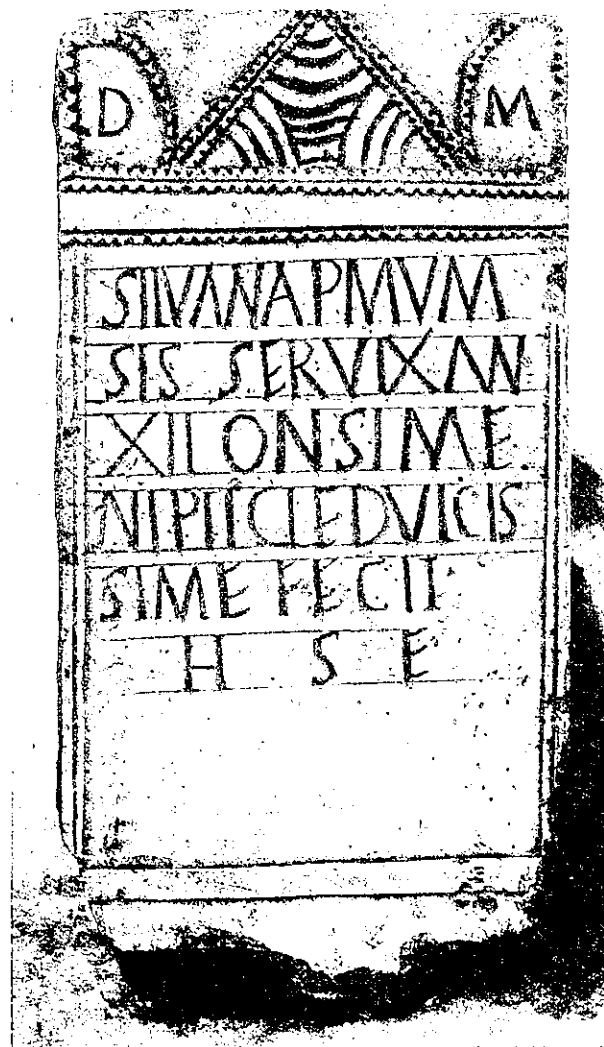 D M
SILVANAPMVM
SIS SERVIXAN
XILONSIME
NIPTICLEDVLCIS
SIME FECIT
H S E